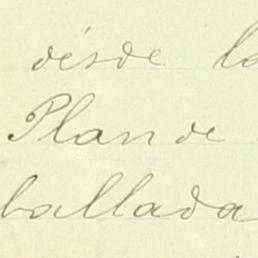 désde la
Plan de
ballada